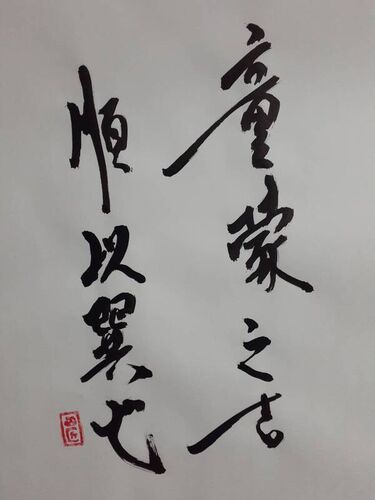 童蒙之吉
順以巽也